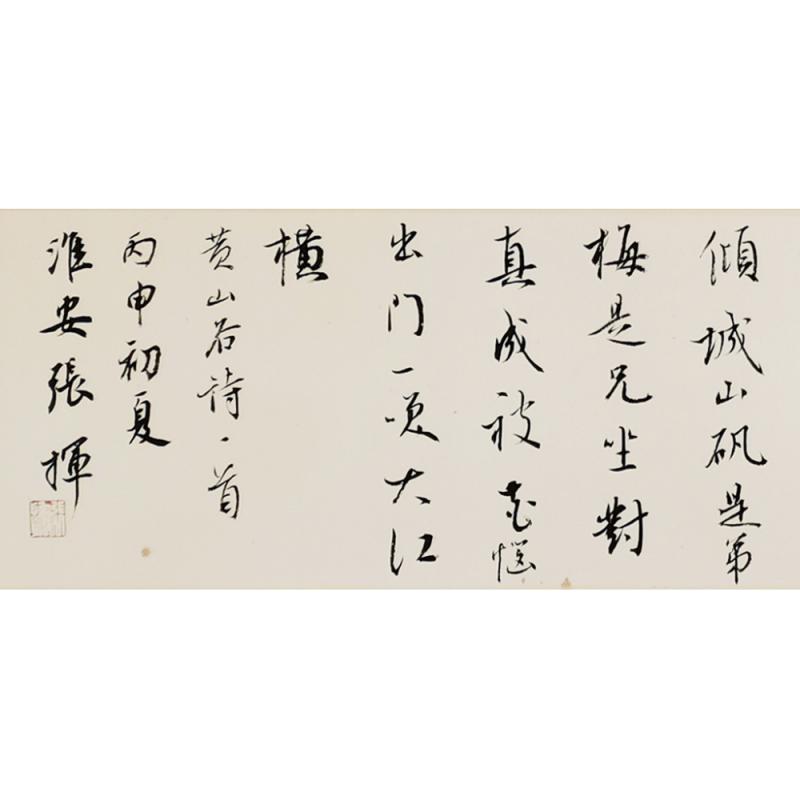 傾城山矾是弟
梅是兄坐對
真成被花惱
出门一笑大江
橫
黄山谷詩一首
丙申初夏
淮安張揮